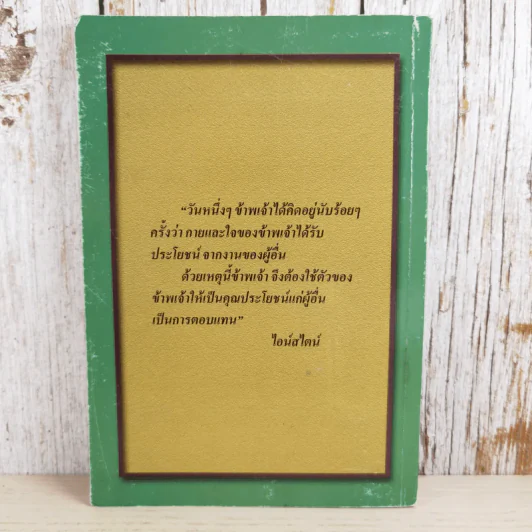 “วันหนึ่งๆ ข้าพเจ้าได้คิดอยู่นับร้อยๆ
ครั้งว่า กายและใจของข้าพเจ้าได้รับ
ประโยชน์ จากงานของผู้อื่น
ด้วยเหตุนี้ข้าพเจ้า จึงต้องใช้ตัวของ
ข้าพเจ้าให้เป็นคุณประโยชน์แก่ผู้อื่น
เป็นการตอบแทน”
ไอน์สไตน์